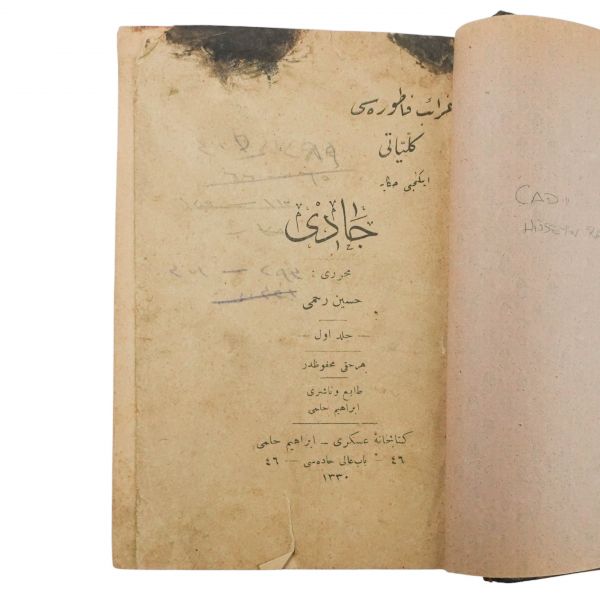 غرائب فاطوره‌سی
كلّیاتی
ایكنجی حكایه
جادی
محرری :
حسین رحمی
— جلد اول —
هر حقی محفوظدر
طابع و ناشری
ابراهیم حلمی
كتابخانهٔ عسكری - ابراهیم حلمی
٤٦ — باب عالی جاده‌سی — ٤٦
١٣٣٠
CADI
HÜSEYİN